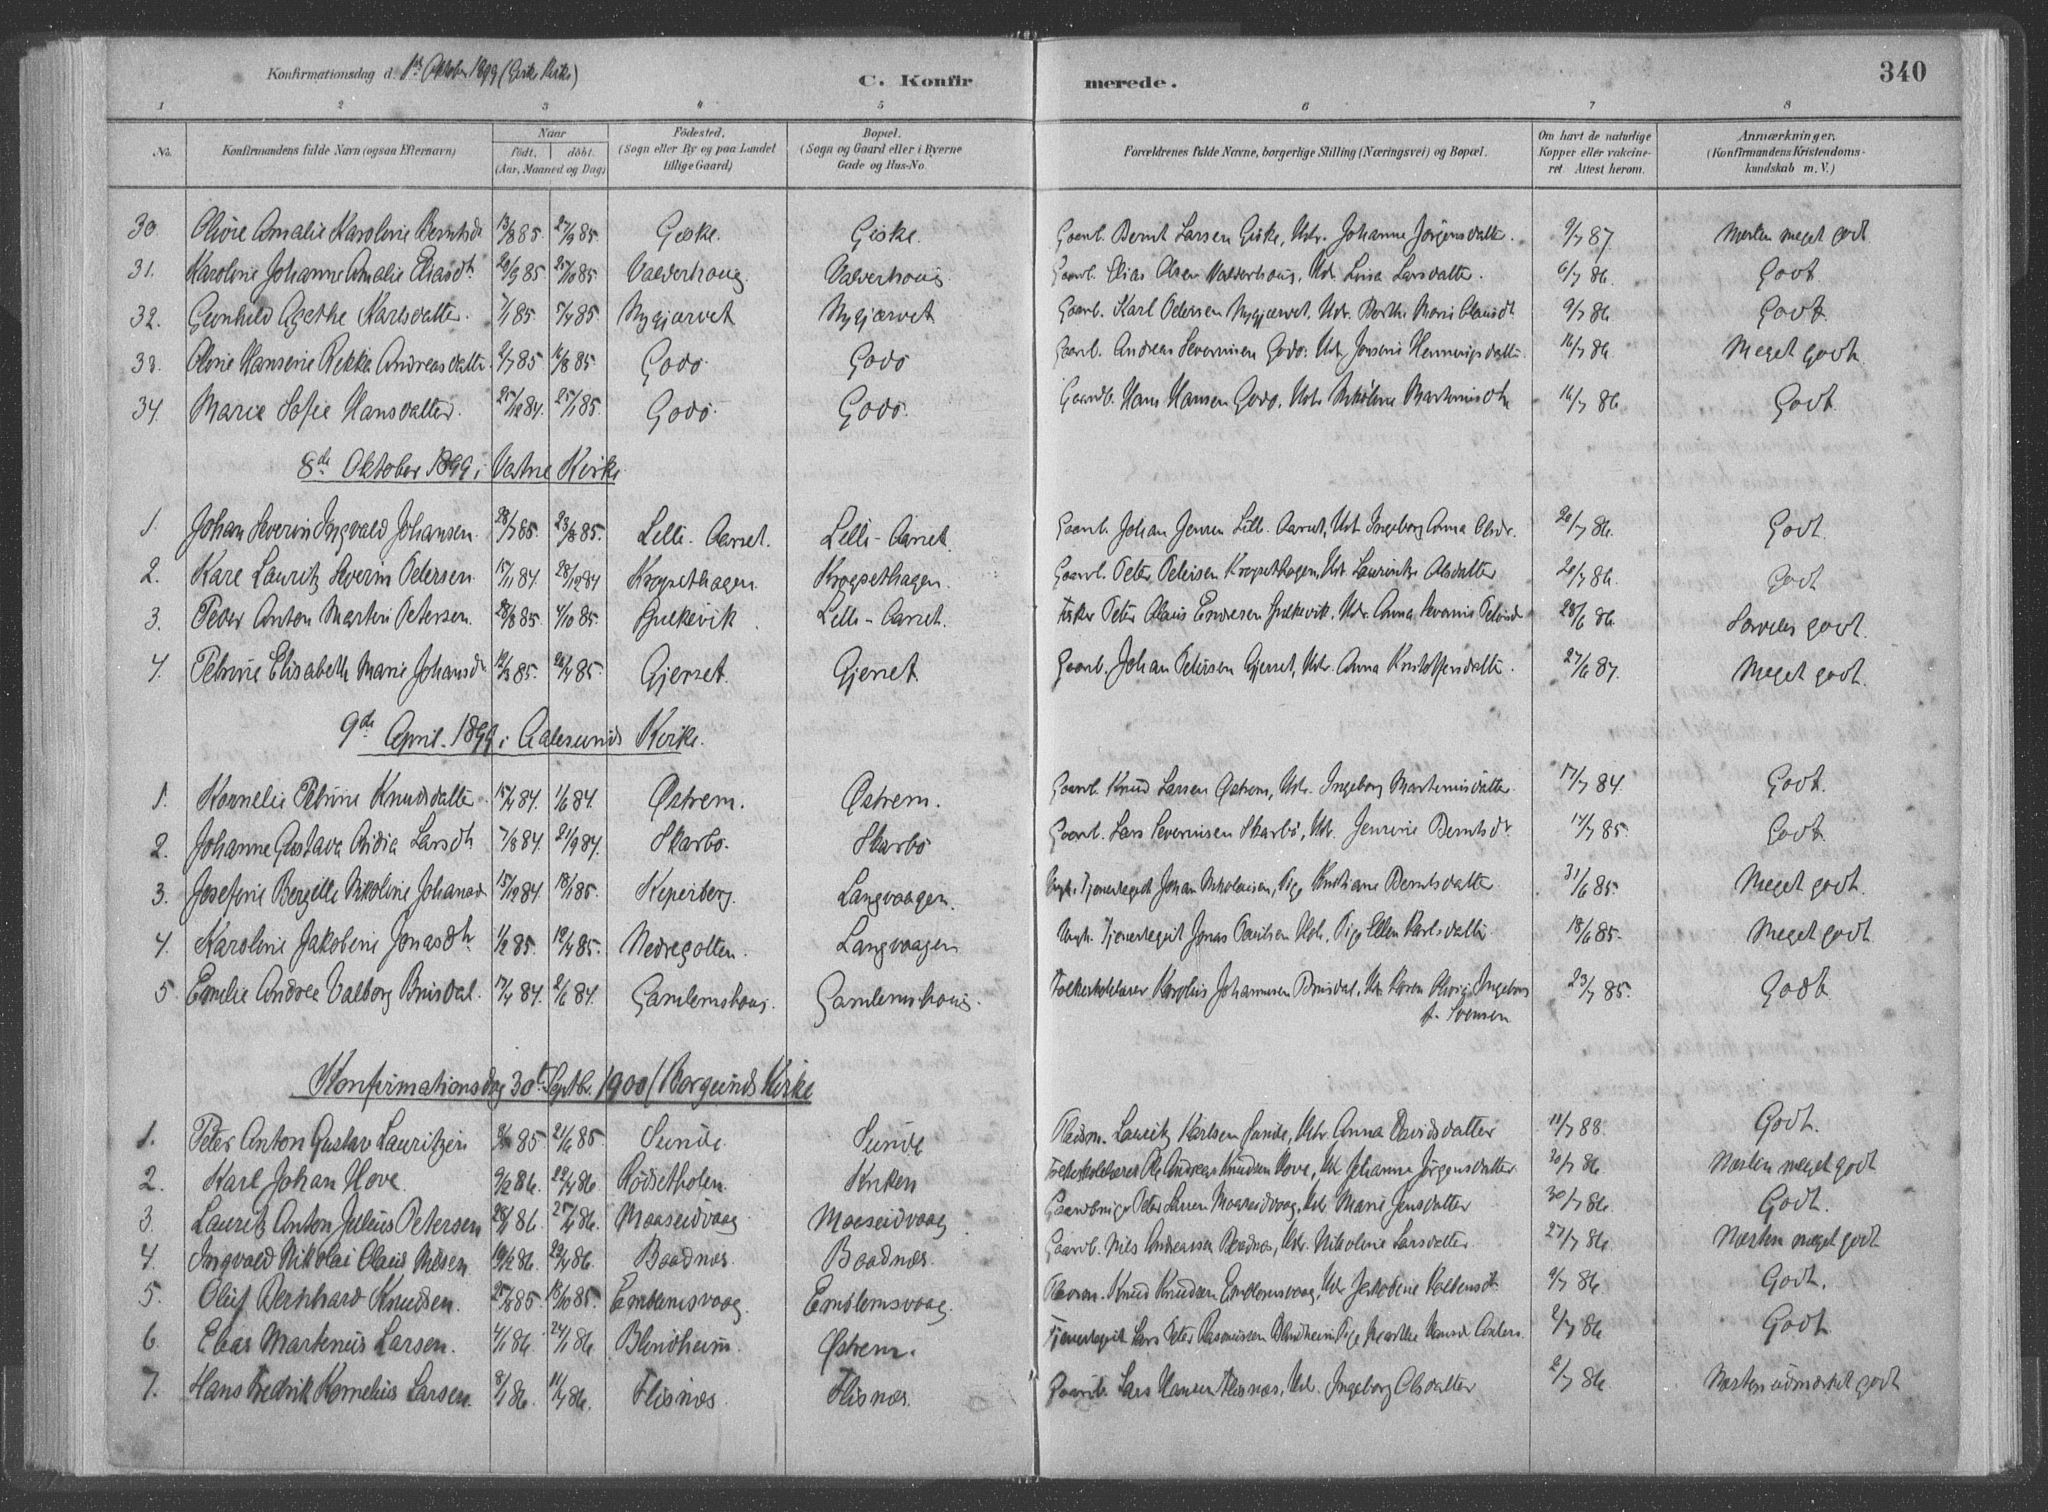 Konfirmationsdag d. 1ste Oktober 1899 (Giske Kirke) C. Konfirmerede. 340
1 2 3 4 5 6 7 8
No. Konfirmandens fulde Navn (ogsaa Efternavn) Naar født. døbt. (Aar, Maaned og Dag) Fødested. (Sogn eller By og paa Landet tillige Gaard) Bopæl. (Sogn og Gaard eller i Byerne Gade og Hus-No. Forældrenes fulde Navne, borgerlige Stilling (Næringsvei) og Bopæl. Om havt de naturlige Kopper eller vakcineret. Attest herom. Anmærkninger. (Konfirmandens Kristendomskundskab m. V.)
30. Olivie Amalie Karoline Berntsdr 13/8 85. 27/9 85. Giske. Giske. Gaardb. Bernt Larsen Giske, Hstr. Johanne Jørgensdatter. 9/7 87. Næsten meget godt
31. Karoline Johanne Amalie Eliasdtr 20/9 85 25/10 85 Valderhoug. Valderhoug. Gaardb. Elias Olsen Valderhoug, Hstr. Lina Larsdatter. 6/7 86. Godt
32. Gunhild Agethe Karlsdatter. 7/1 85 7/4 85. Nygjærvet Nygjærvet Gaardb. Karl Petersen Nygjærvet, Hstr. Berthe Marie Olausdtr 9/7 86 Godt.
33. Oline Hansine Rekka Andreasdatter. 2/7 85 16/8 85. Godø. Godø Gaardb. Andreas Severinsen Godø. Hstr. Jonsine Henningsdatter. 16/7 86 Meget godt.
34. Marie Sofie Hansdatter. 25/12 84. 25/1 85. Godø. Godø. Gaardb. Hans Hansen Godø. Hstr. Nikoline Martinusdtr 16/7 86 Godt.
8de Oktober 1899 i Vatne Kirke
1. Johan Severin Ingvald Johansen. 28/7 85. 23/8 85. Lille-Aarset. Lille-Aarset. Gaardb. Johan Jensen Lille-Aarset, Hstr. Ingeborg Anna Olsdr. 20/7 86. Godt.
2. Kare Lauritz Severin Petersen. 15/11 84. 28/12 84 Krogsethagen Krogsethagen. Gaardb. Peter Petersen Krogsethagen, Hstr. Laurintze Olsdatter 20/7 86. Godt
3. Peder Anton Martin Petersen. 28/8 85. 4/10 85. Hulkevik. Lille-Aarset. Fisker Peter Olaus Endresen Hulkevik. Hstr. Anna Severine Petersdr 28/6 86 Særdeles godt.
4. Petrine Elisabeth Marie Johansdr 12/3 85. 26/4 85. Gjerset. Gjerset. Gaardb. Johan Petersen Gjerset, Hstr. Anna Kristoffersdatter. 27/6 87. Meget godt.
9de April 1899 i Aalesunds Kirke.
1. Kornelie Petrine Knudsdatter. 15/4 84. 1/6 84. Østrem. Østrem. Gaardb. Knud Larsen Østrem, Hstr. Ingeborg Martinusdatter. 17/7 84. Godt.
2. Johanne Gustava Oidia Larsdtr 7/8 84. 21/9 84. Skarbø. Skarbø Gaardb. Lars Severinsen Skarbø, Hstr. Jensine Berntsdr. 17/7 85. Godt.
3. Josefine Bergitte Nikoline Johansdr 15/12 84. 18/1 85. Keperberg. Langvaagen. Ungk. Tjenestegut Johan Nikolaisen, Pige Kristiane Berntsdatter. 31/6 85. Meget godt.
4. Karoline Jakobine Jonasdtr 1/2 85. 19/4 85. Nedregotten. Langvaagen Ungk. Tjenestegut Jonas Paulsen, Pige Ellen Karlsdatter 18/6 85. Meget godt.
5 Emilie Andrea Valborg Brusdal. 17/4 84. 2/6 84. Gamlemshoug. Gamlemshoug. Folkeskolelærer Karolius Johannesen Brusdal, Hstr. Karen Ingeborg f. Svensen 23/7 85. Godt.
Konfirmationsdag 30te Septbr. 1900 (Borgunds Kirke
1. Peter Anton Gustav Lauritzen 85 21/6 85. Sunde. Sunde Pladsm. Lauritz Karlsen Sunde, Hstr. Anna Davidsdatter 11/7 88. Godt.
2. Karl Johan Hove. 9/2 86. 22/4 86 Rødsetholen. Kirken Folkeskolelærer Ole Andreas Knudsen Hove, Hstr. Johanne Jørgensdatter 30/7 86 Næsten meget godt
3. Lauritz Anton Julius Petersen 28/1 86 25/4 86. Maaseidvaag. Maaseidvaag Gaardbruger Peder Larsen Maaseidvaag, Hstr. Marie Jensdatter 30/7 86. Godt.
4. Ingvald Nikolai Olaus Nilsen 19/2 86. 23/4 86. Baadnæs. Baadnæs. Gaardb. Nils Andreassen Baadnæs, Hstr. Nikoline Larsdatter. 27/7 86 Næsten meget godt
5. Oluf Bernhard Knudsen. 25/8 85. 18/10 85. Emblemsvaag. Emblemsvaag. Pladsm. Knud Knudsen Emblemsvaag, Hstr. Jakobine 9/7 86 Godt.
6 Elias Martinus Larsen. 4/1 86. 24/1 86. Blindheim. Østrem. Tjenestegut Lars Peter Rasmussen Blindheim, Pige Marthe Hansdr 2/7 86 Godt.
7. Hans Fredrik Kornelius Larsen. 8/1 86. 11/4 86. Flisnæs. Flisnæs. Gaardb. Lars Hansen Flisnæs, Hstr. Ingeborg Olsdatter 2/7 86 Næsten udmærket godt